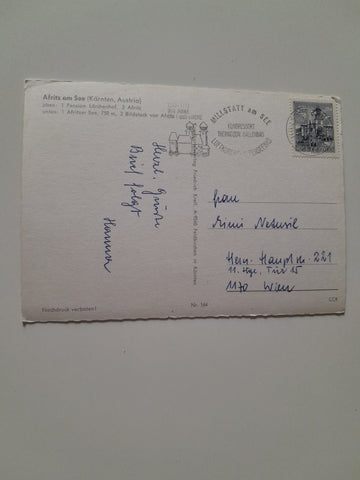 Afritz am See (Kärnten, Austria)
oben: 1 Pension Lärchenhof, 2 Afritz
unten: 1 Afritzer See, 750 m, 2 Bildstock von Afritz
MILLSTATT am SEE
KONGRESSORT
THERMALSOLE HALLENBAD
Herzl. Grüße
Brief folgt
Hanna
Frau
Mimi
Hern. Hauptstr. 221
11. Stge, Tür 15
1170 Wien
Nachdruck verboten!
Nr. 164
CCK